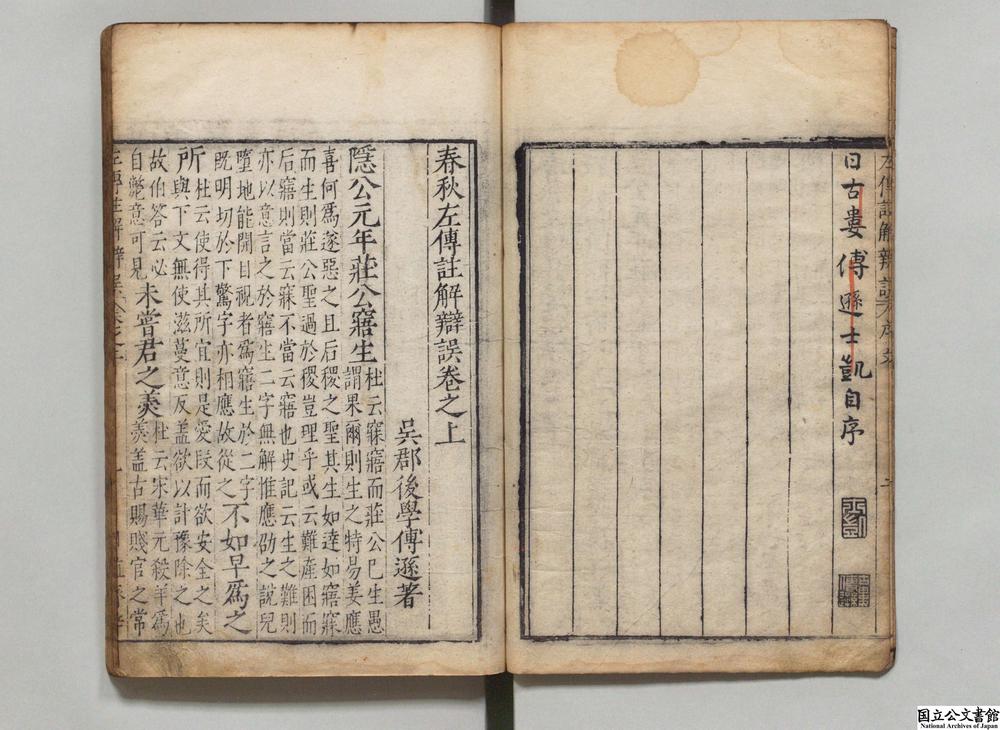 日古婁傅遜士凱自序
春秋左傳註解辯誤卷之上
吳郡後學傅遜著
隱公元年莊公寤生杜云寐寤而莊公已生愚
謂果爾則生之特易姜應
喜何爲遂惡之且后稷之聖其生如達如寤寐
而生則莊公聖過於稷豈理乎或云難產困而
后寤則當云寐不當云寤也史記云生之難則
亦以意言之於寤生二字無解惟應劭之說兒
墮地能開目視者爲寤生於二字
既明切於下驚字亦相應故從之不如早爲之
所杜云使得其所宜則是愛段而欲安全之矣
與下文無使滋蔓意反盖欲以計豫除之也
故伯答云必
自斃意可見未嘗君之羹杜云宋華元殺羊爲
羹盖古賜賤官之常
国立公文書館
National Archives of Japan